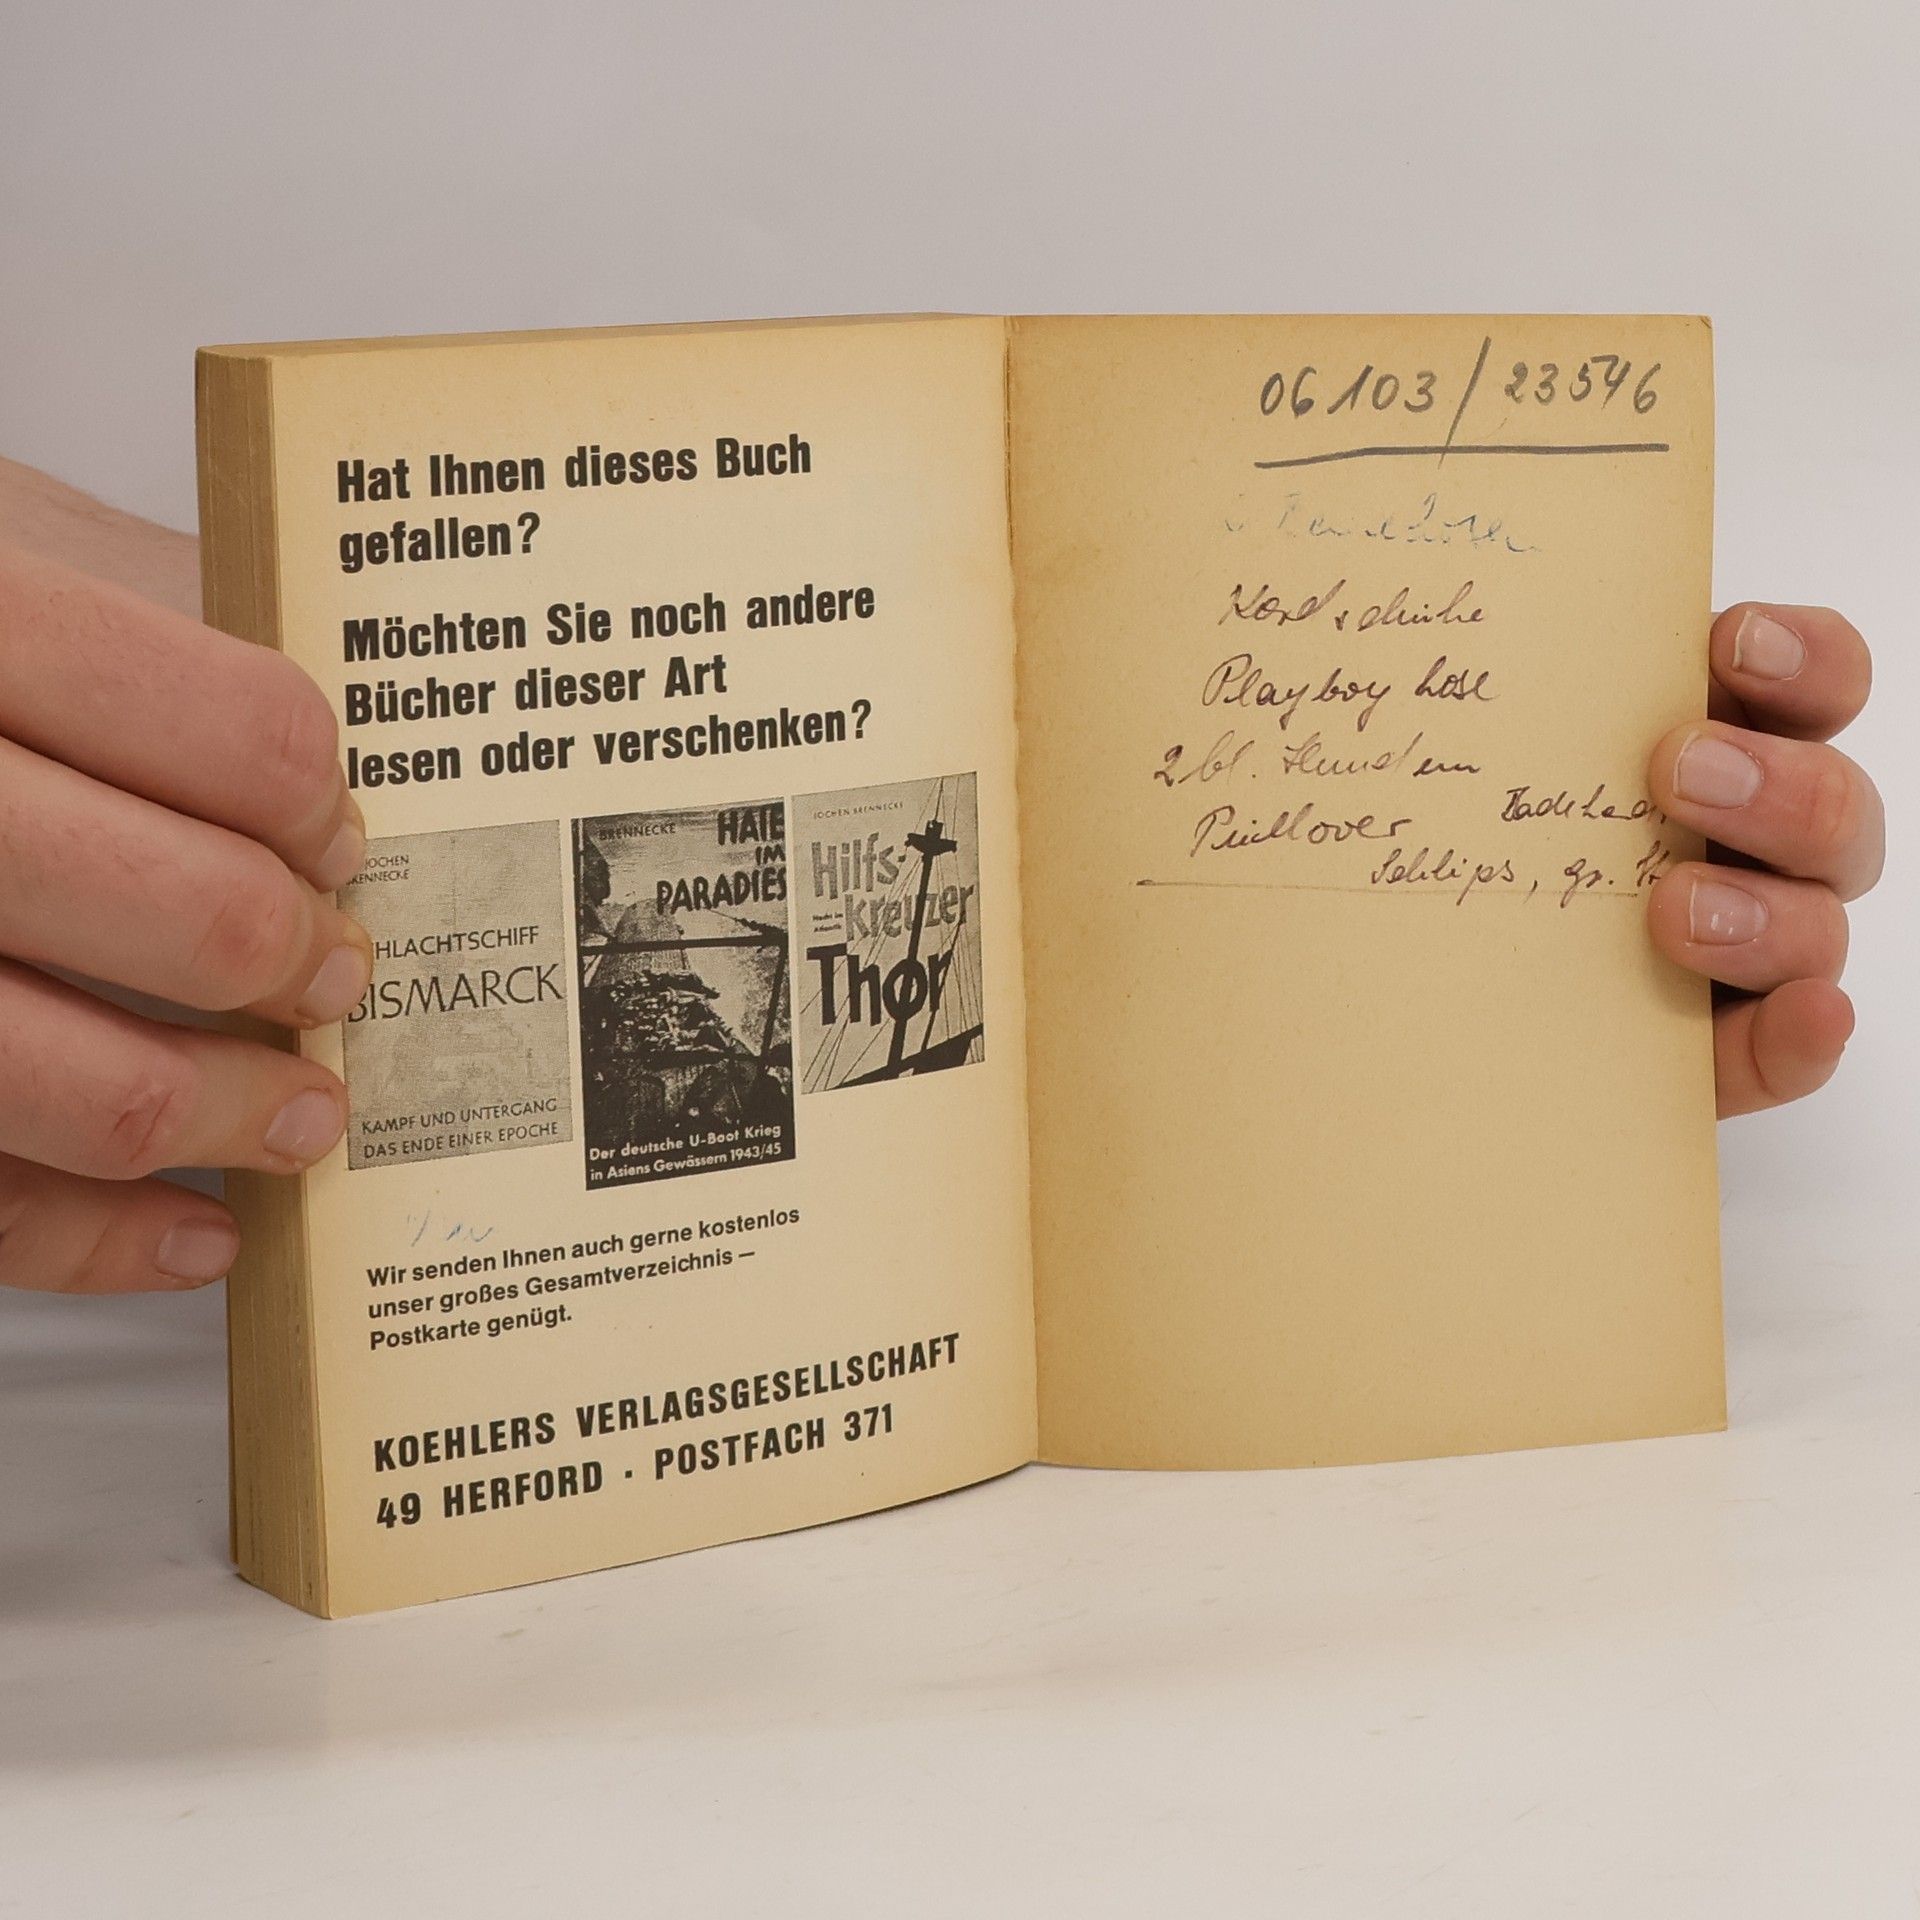 Hat Ihnen dieses Buch
gefallen?
Möchten Sie noch andere
Bücher dieser Art
lesen oder verschenken?
JOCHEN
BRENNECKE
HLACHTSCHIFF
BISMARCK
KAMPF UND UNTERGANG
DAS ENDE EINER EPOCHE
BRENNECKE
HAIE
IM
PARADIES
Der deutsche U-Boot Krieg
in Asiens Gewässern 1943/45
JOCHEN BRENNECKE
Hilfs-
kreuzer
Thor
Wir senden Ihnen auch gerne kostenlos
unser großes Gesamtverzeichnis —
Postkarte genügt.
KOEHLERS VERLAGSGESELLSCHAFT
49 HERFORD · POSTFACH 371
06103/23546
Kordschuhe
Playboy hose
2 bl. Hemden
Pullover
Schlips, gr.